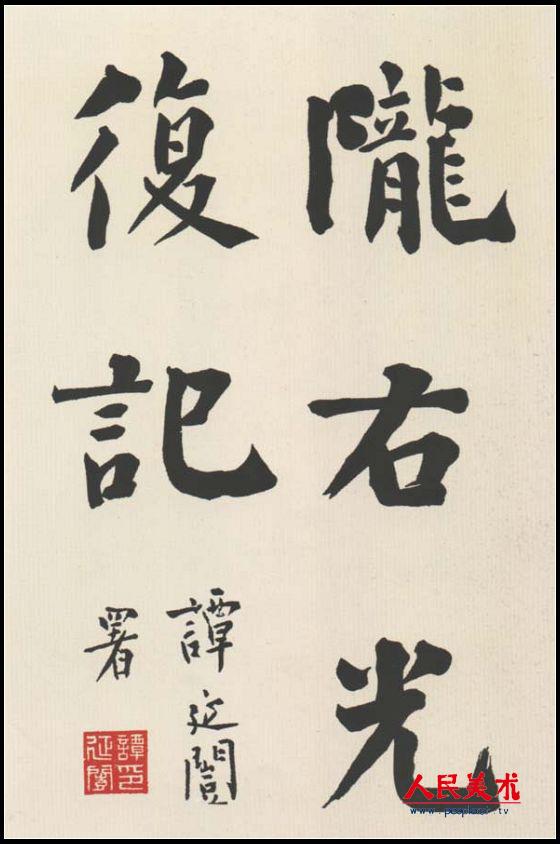 隴右光
復記
譚延闓
署
譚延闓印
人民美术
www.peopleart.tv